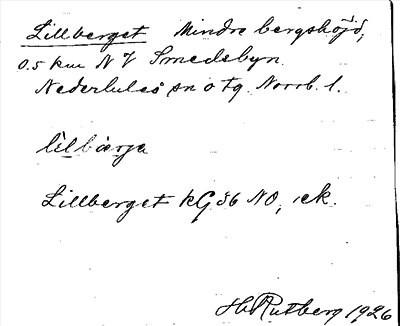 Lillberget Mindre bergshöjd,
0.5 km NV Smedsbyn.
Nederluleå sn o tg. Norrb. l.
lìlbärje
Lillberget kG 36 NO, ek.
H Rutberg 1926